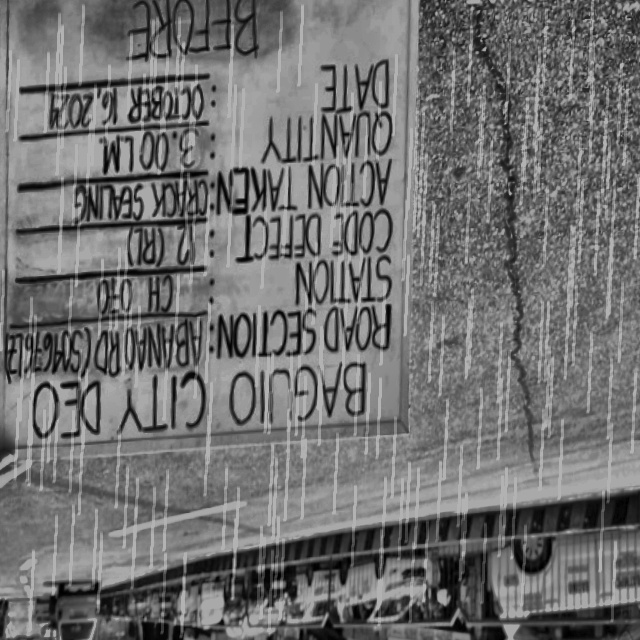 BAGUIO CITY DEO
ROAD SECTION: ABANAO RD
STATION : CH 030
CODE DEFECT : 12 (RL)
ACTION TAKEN: CRACK SEALING
QUANTITY : 3.00 LM.
DATE : OCTOBER 16, 2024
BEFORE